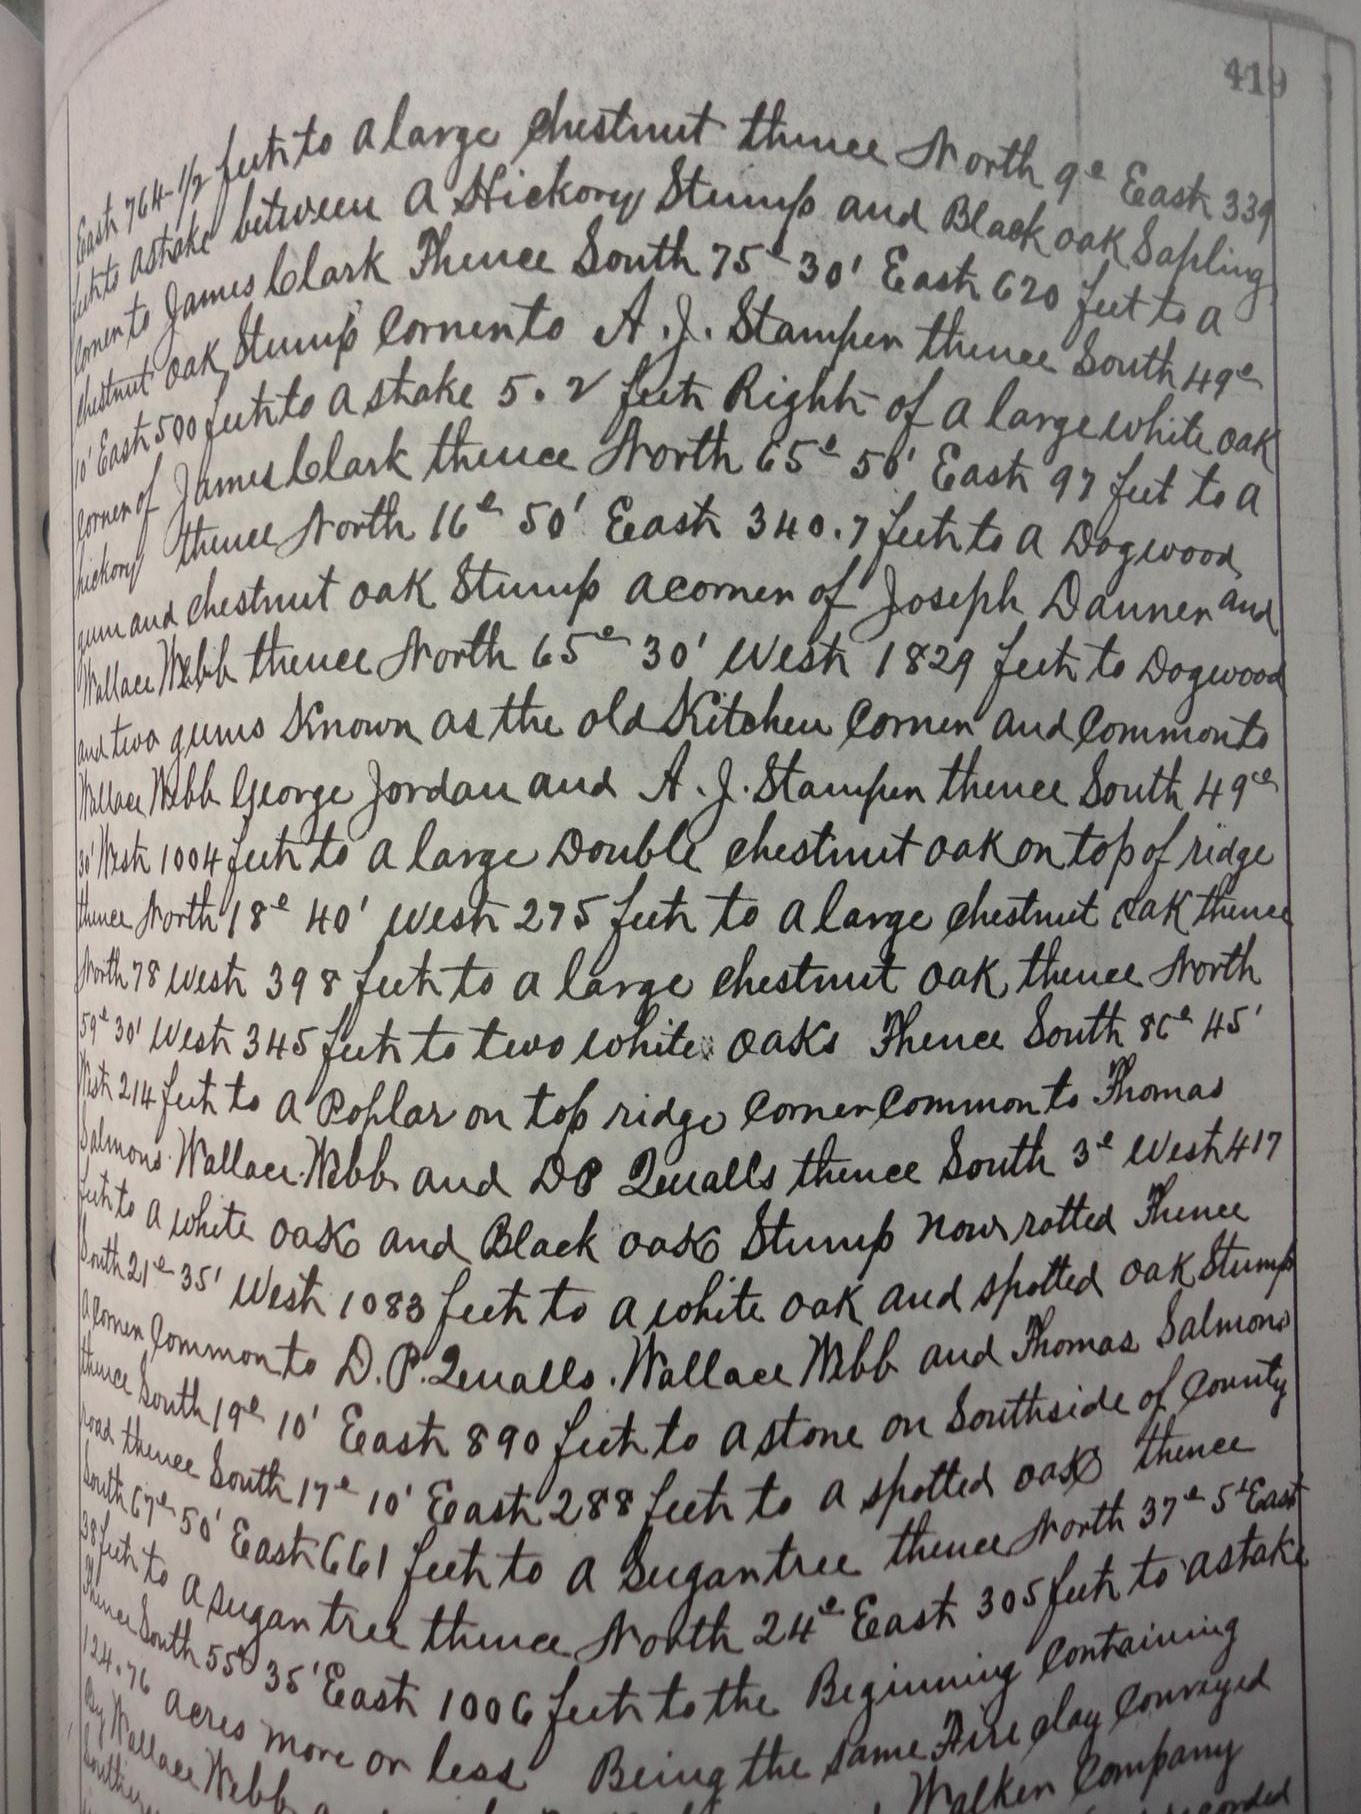 419
East 764-1/2 feet to a large chestnut thence North 9° East 339
feet to a stake between a Hickory Stump and Black oak Sapling
Corner to James Clark Thence South 75° 30' East 620 feet to a
chestnut oak Stump Corner to A. J. Stamper thence South 49°
10' East 500 feet to a stake 5.2 feet Right of a large white oak
corner of James Clark thence North 65° 50' East 97 feet to a
hickory thence North 16° 50' East 340.7 feet to a Dogwood
gum and chestnut oak Stump a corner of Joseph Danner and
Wallace Webb thence North 65° 30' West 1829 feet to Dogwood
and two gums Known as the old Kitchen Corner and Common to
Wallace Webb George Jordan and A. J. Stamper thence South 49°
30' West 1004 feet to a large Double chestnut oak on top of ridge
thence North 18° 40' West 275 feet to a large chestnut oak thence
North 78 West 398 feet to a large chestnut oak thence North
59° 30' West 345 feet to two white oaks Thence South 86° 45'
West 214 feet to a Poplar on top ridge Corner Common to Thomas
Salmons Wallace Webb and DP Qualls thence South 3° West 417
feet to a white oak and Black oak Stump now rotted Thence
South 21° 35' West 1083 feet to a white oak and spotted oak Stump
a corner Common to D. P. Qualls. Wallace Webb and Thomas Salmons
thence South 19° 10' East 890 feet to a stone on South side of County
road thence South 17° 10' East 288 feet to a spotted oak thence
South 67° 50' East 661 feet to a Sugar tree thence North 37° 5' East
38 feet to a sugar tree thence North 24° East 305 feet to a stake
Thence South 55° 35' East 1006 feet to the Beginning Containing
124.76 acres more or less Being the same Fire clay Conveyed
By Wallace Webb Walker Company